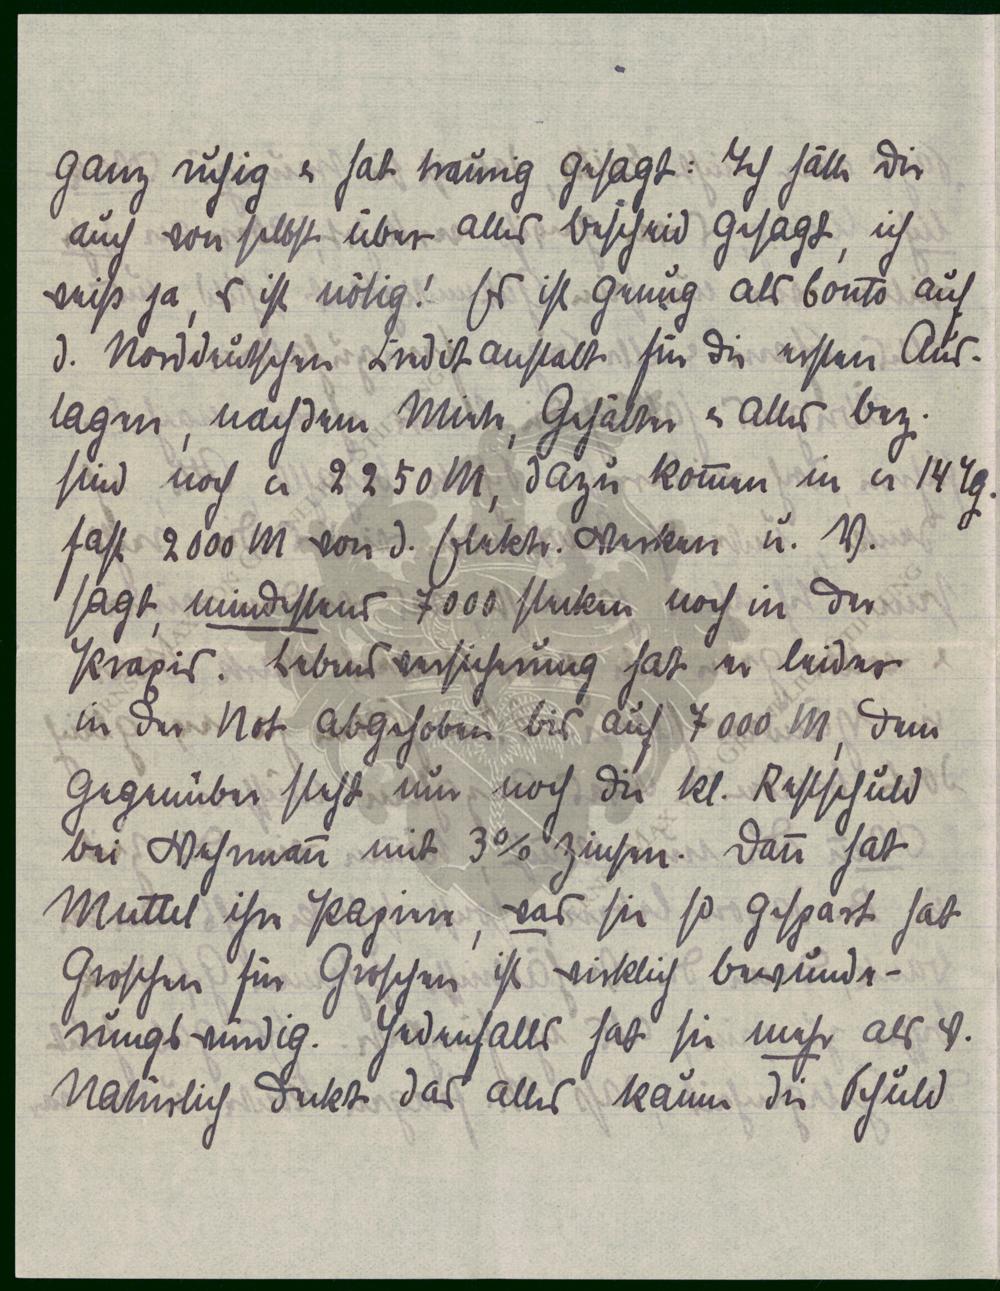 ganz ruhig & hat traurig gesagt: Ich hätte Dir
auch von selbst über alles bescheid gesagt, ich
weiß ja, es ist nötig! Es ist genug als Conto auf
d. Norddeutschen Creditanstalt für die ersten Aus-
lagen, nachdem Miete, Gehälter & alles bez.
sind noch ca 2250 M, dazu kom̄en in ca 14 Tg.
fast 2000 M von d. Elektr. Werken u. V.
sagt, mindestens 7000 stecken noch in der
Praxis. Lebensversicherung hat er leider
in der Not abgehoben bis auf 7000 M, dem
gegenüber steht nur noch die kl. Restschuld
bei Wehrman̄ mit 3% Zinsen. Dan̄ hat
Muttel ihre Papiere, was sie so gespart hat
Groschen für Groschen ist wirklich bewunde-
rungswürdig. Jedenfalls hat sie mehr als V.
Natürlich deckt das alles kaum die Schuld